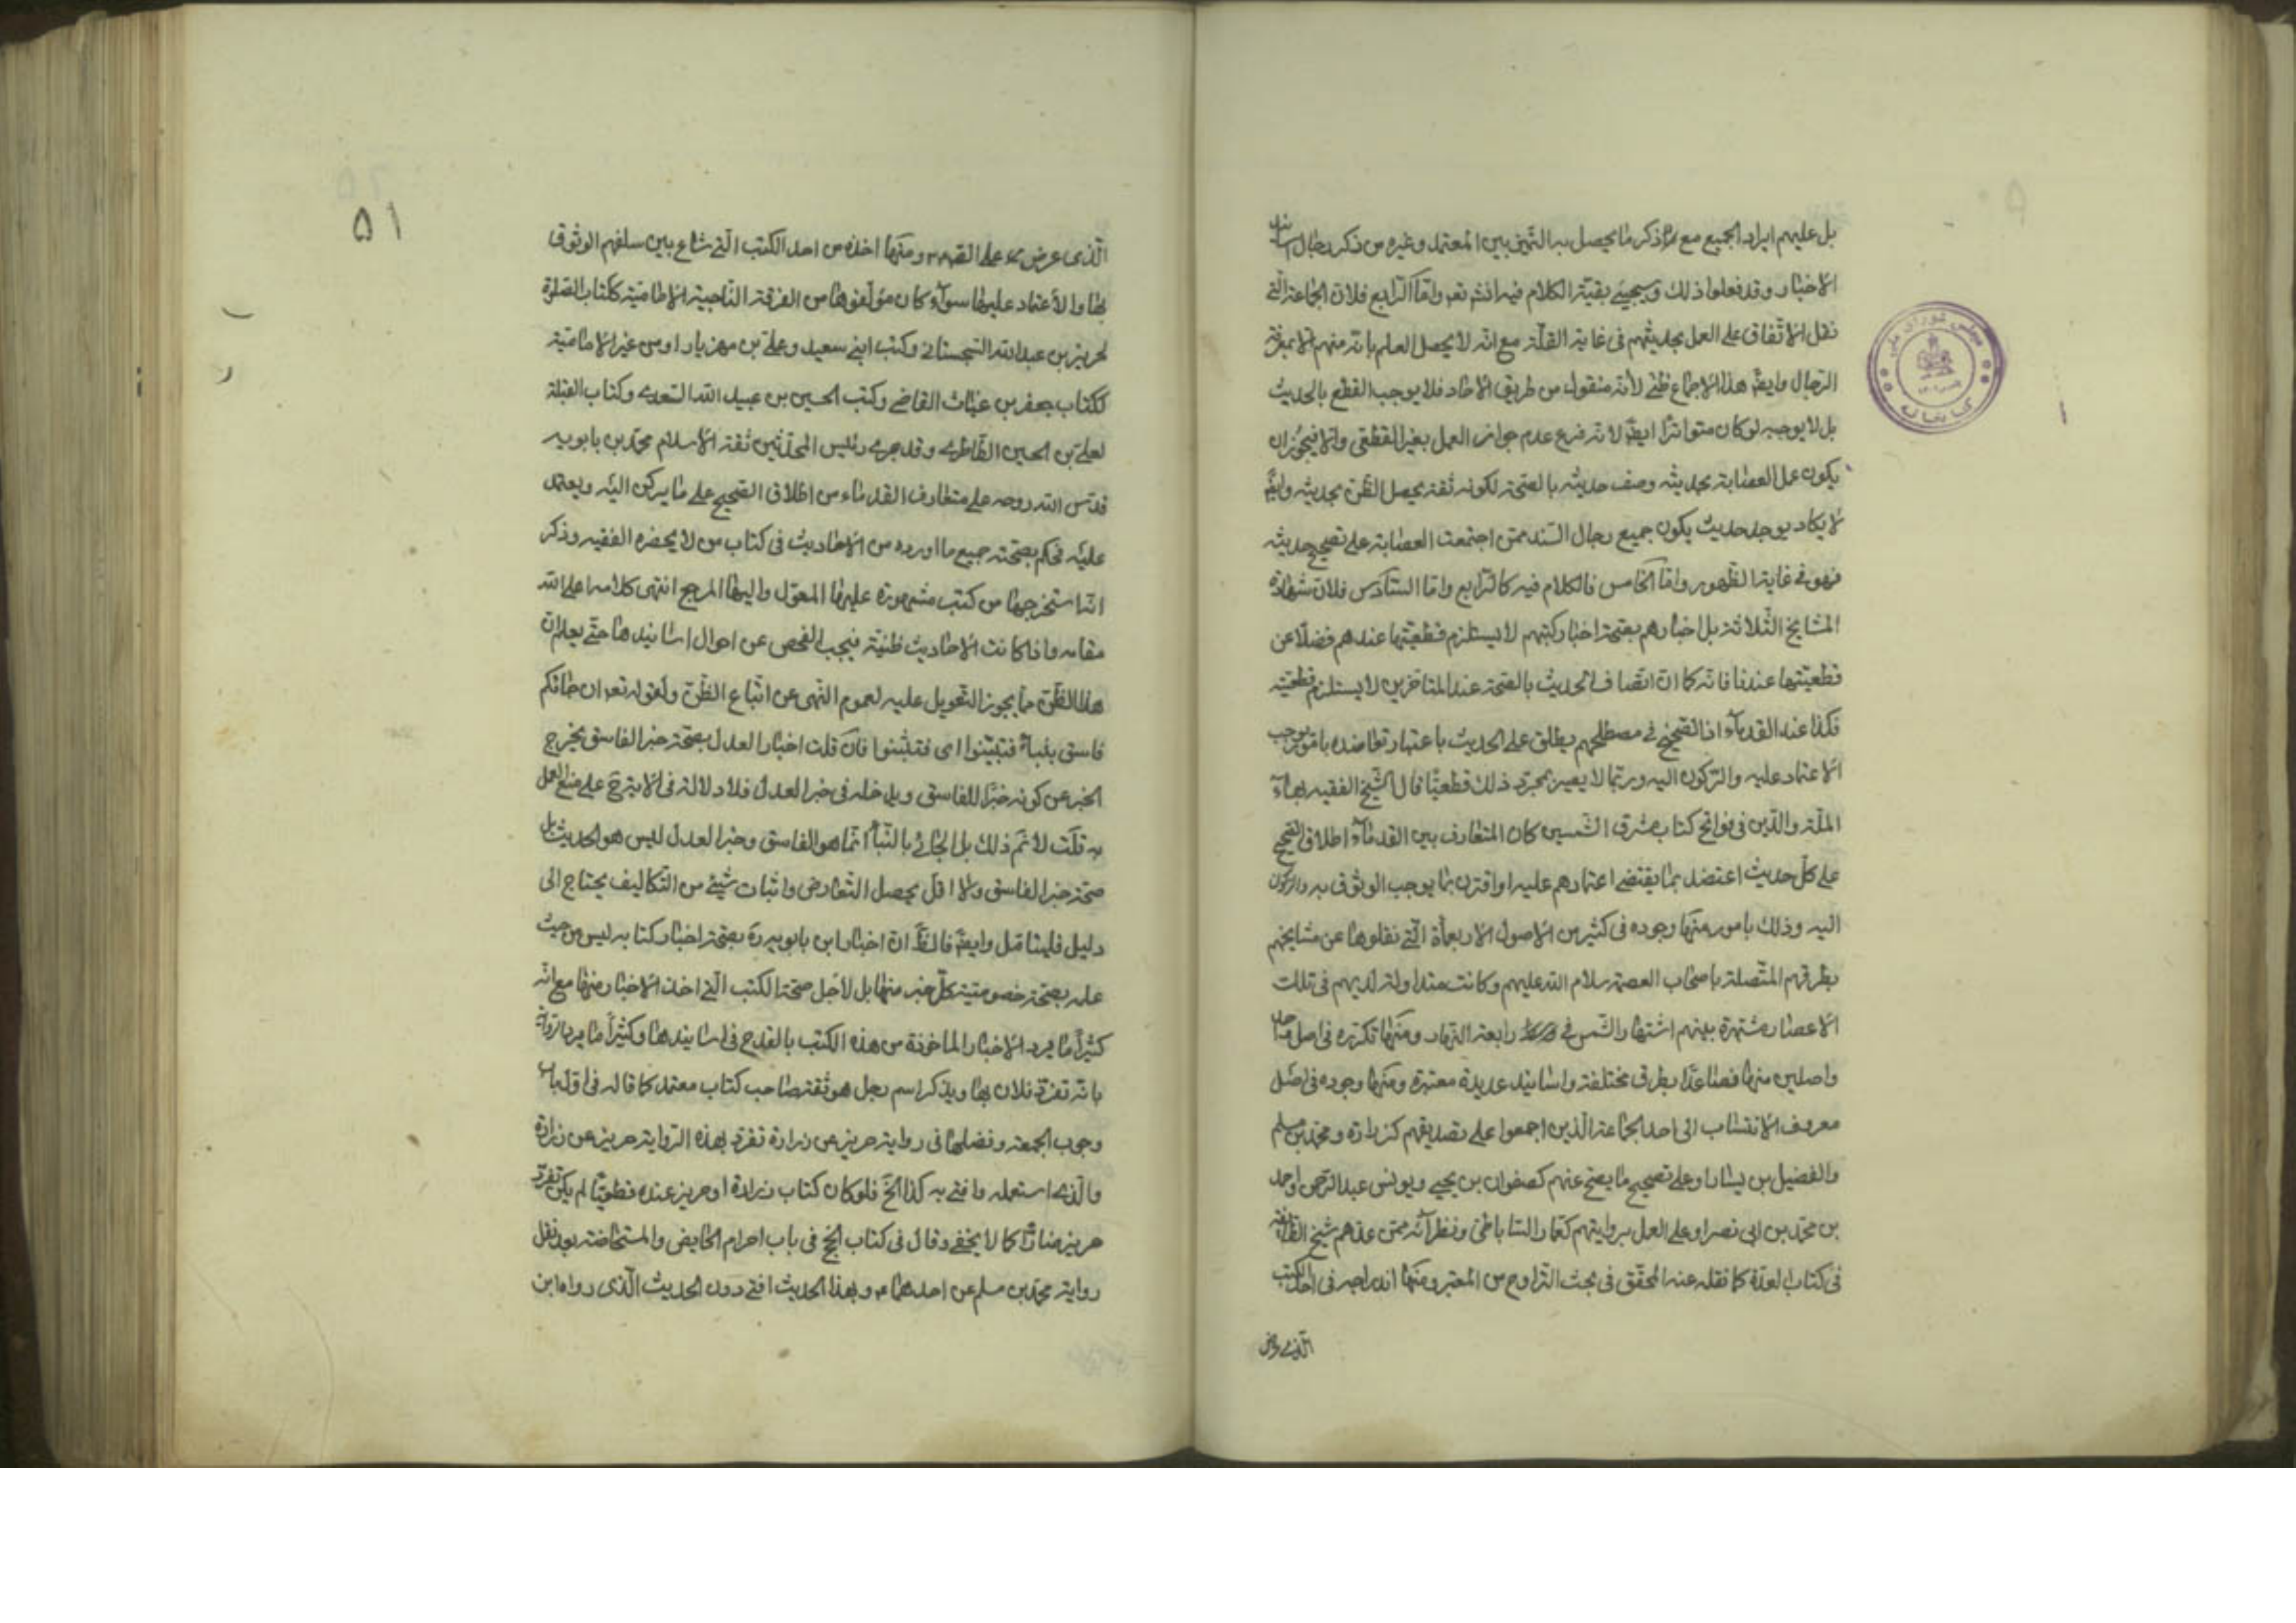 بل عليهم ايراد الجميع مع ذكر ما يحصل به التميز بين المعتمد وغيره من ذكر رجال اسانيد
الاخبار وقد فعلوا ذلك وسيجيئ بقية الكلام فيه انش تعه واما الرابع فلان الجماعة التي
نقل الاتفاق على العمل بحديثهم في غاية القلة مع انه لا يحصل العلم بانه منهم الا بمعرفة
الرجال وايضا هذا الاجماع ظني لانه منقول من طريق الاحاد فلا يوجب القطع بالحديث
بل لا يوجبه لوكان متواترا ايضا لانه فرع عدم جواز العمل بغير القطعي والا فيجوز ان
يكون عمل العصابة بحديثه وصف حديثه بالصحة لكونه ثقة يحصل الظن بحديثه وايضا
لا يكاد يوجد حديث يكون جميع رجال السند ممن اجتمعت العصابة على تصحيح حديثه
فهو في غاية الظهور واما الخامس فالكلام فيه كالرابع واما السادس فلان شهادة
المشايخ الثلاثة بل اخبارهم بصحة اخبار كتبهم لا يستلزم قطعيتها عندهم فضلا عن
قطعيتها عندنا فانه كما ان اتصاف الحديث بالصحة عند المتاخرين لا يستلزم قطعيته
فكذا عند القدماء اذ الصحيح في مصطلحهم يطلق على الحديث باعتبار تعاضده بامور توجب
الاعتماد عليه والركون اليه وربما لا يصير بمجرد ذلك قطعيا قال الشيخ الفقيه بهاء
الملة والدين في فواتح كتاب مشرق الشمسين كان المتعارف بين القدماء اطلاق الصحيح
على كل حديث اعتضد بما يقتضي اعتمادهم عليه او اقترن بما يوجب الوثوق به والركون
اليه وذلك بامور منها وجوده في كثير من الاصول الاربعمأة التي نقلوها عن مشايخهم
بطرقهم المتصلة باصحاب العصمة سلام الله عليهم وكانت متداولة لديهم في تلك
الاعصار مشتهرة بينهم اشتهار الشمس في رابعة النهار ومنها تكرره في اصل واحد
واصلين منها فصاعدا بطرق مختلفة واسانيد عديدة معتبرة ومنها وجوده في اصل
معروف الانتساب الى احد الجماعة الذين اجمعوا على تصديقهم كزرارة ومحمد بن مسلم
والفضيل بن يسار او على تصحيح ما يصح عنهم كصفوان بن يحيى ويونس عبد الرحمن واحمد
بن محمد بن ابي نصر او على العمل برواياتهم كعمار الساباطي ونظرائه ممن عدهم شيخ الطائفة
في كتاب العدة كما نقله عنه المحقق في بحث التراوح من المعتبر ومنها اندراجه في احد الكتب
الذي عرض
٥١
الذي عرض على الائمة ومنها اخذه من احد الكتب التي شاع بين سلفهم الوثوق
بها والاعتماد عليها سواء كان مؤلفوها من الفرقة الناجية الامامية ككتاب الصلوة
لحريز بن عبدالله السجستاني وكتب ابني سعيد وعلي بن مهزيار او من غير الامامية
ككتاب جعفر بن غياث القاضي وكتب الحسين بن عبيد الله السعدي وكتاب القبلة
لعلي بن الحسين الطاطري وقد جرى رئيس المحدثين ثقة الاسلام محمد بن بابويه
قدس الله روحه على متعارف القدماء من اطلاق الصحيح على ما يركن اليه ويعتمد
عليه فحكم بصحة جميع ما اورده من الاحاديث في كتاب من لا يحضره الفقيه وذكر
انه استخرجها من كتب مشهورة عليها المعول واليها المرجع انتهى كلامه اعلى الله
مقامه واذا كانت الاحاديث ظنية فيجب الفحص عن احوال اسانيدها حتى يعلم ان
هذا الظن مما يجوز التعويل عليه لعموم النهي عن اتباع الظن ولقوله تعه ان جائكم
فاسق بنبأ فتبينوا اي فتثبتوا فان قلت اخبار العدل بصحة خبر الفاسق يخرج
الخبر عن كونه خبرا للفاسق ويدخله في خبر العدل فلا دلالة في الاية ح على منع العمل
به قلت لانم ذلك بل الجائي بالنبأ انما هو الفاسق وخبر العدل ليس هو الحديث بل
صحة خبر الفاسق ولا اقل يحصل التعارض واثبات شيئ من التكاليف يحتاج الى
دليل فليتأمل وايضا فالظ ان اخبار ابن بابويه ره بصحة اخبار كتابه ليس من حيث
علمه بصحة خصوصية كل خبر منها بل لاجل صحة الكتب التي اخذ الاخبار منها مع انه
كثيرا ما يرد الاخبار الماخوذة من هذه الكتب بالقدح في اسانيدها وكثيرا ما يرد الرواية
بانه تفرد فلان بها ويذكر اسم رجل هو ثقة صاحب كتاب معتمد كما قاله في اول باب
وجوب الجمعة وفضلها في رواية حريز عن زرارة تفرد بهذه الرواية حريز عن زرارة
والذي استعمله وافتي به كذا الخ فلو كان كتاب زرارة او حريز عنده قطعيا لم يكن تفرد
حريز ضارا كما لا يخفى وقال في كتاب الحج في باب احرام الحايض والمستحاضة بعد نقل
رواية محمد بن مسلم عن احدهما ع وبهذا الحديث افتي دون الحديث الذي رواه ابن